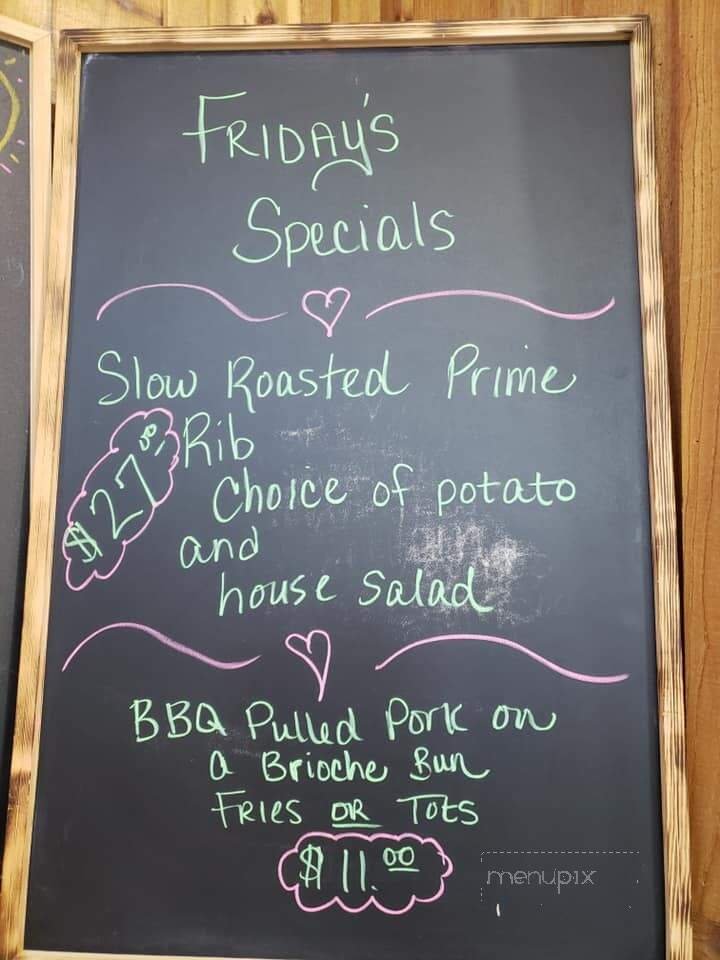 FRIDAY'S
Specials
Slow Roasted Prime
Rib
$27.00
Choice of potato
and
house salad
BBQ Pulled Pork on
a Brioche Bun
FRIES OR TOTS
$11.00
menupix